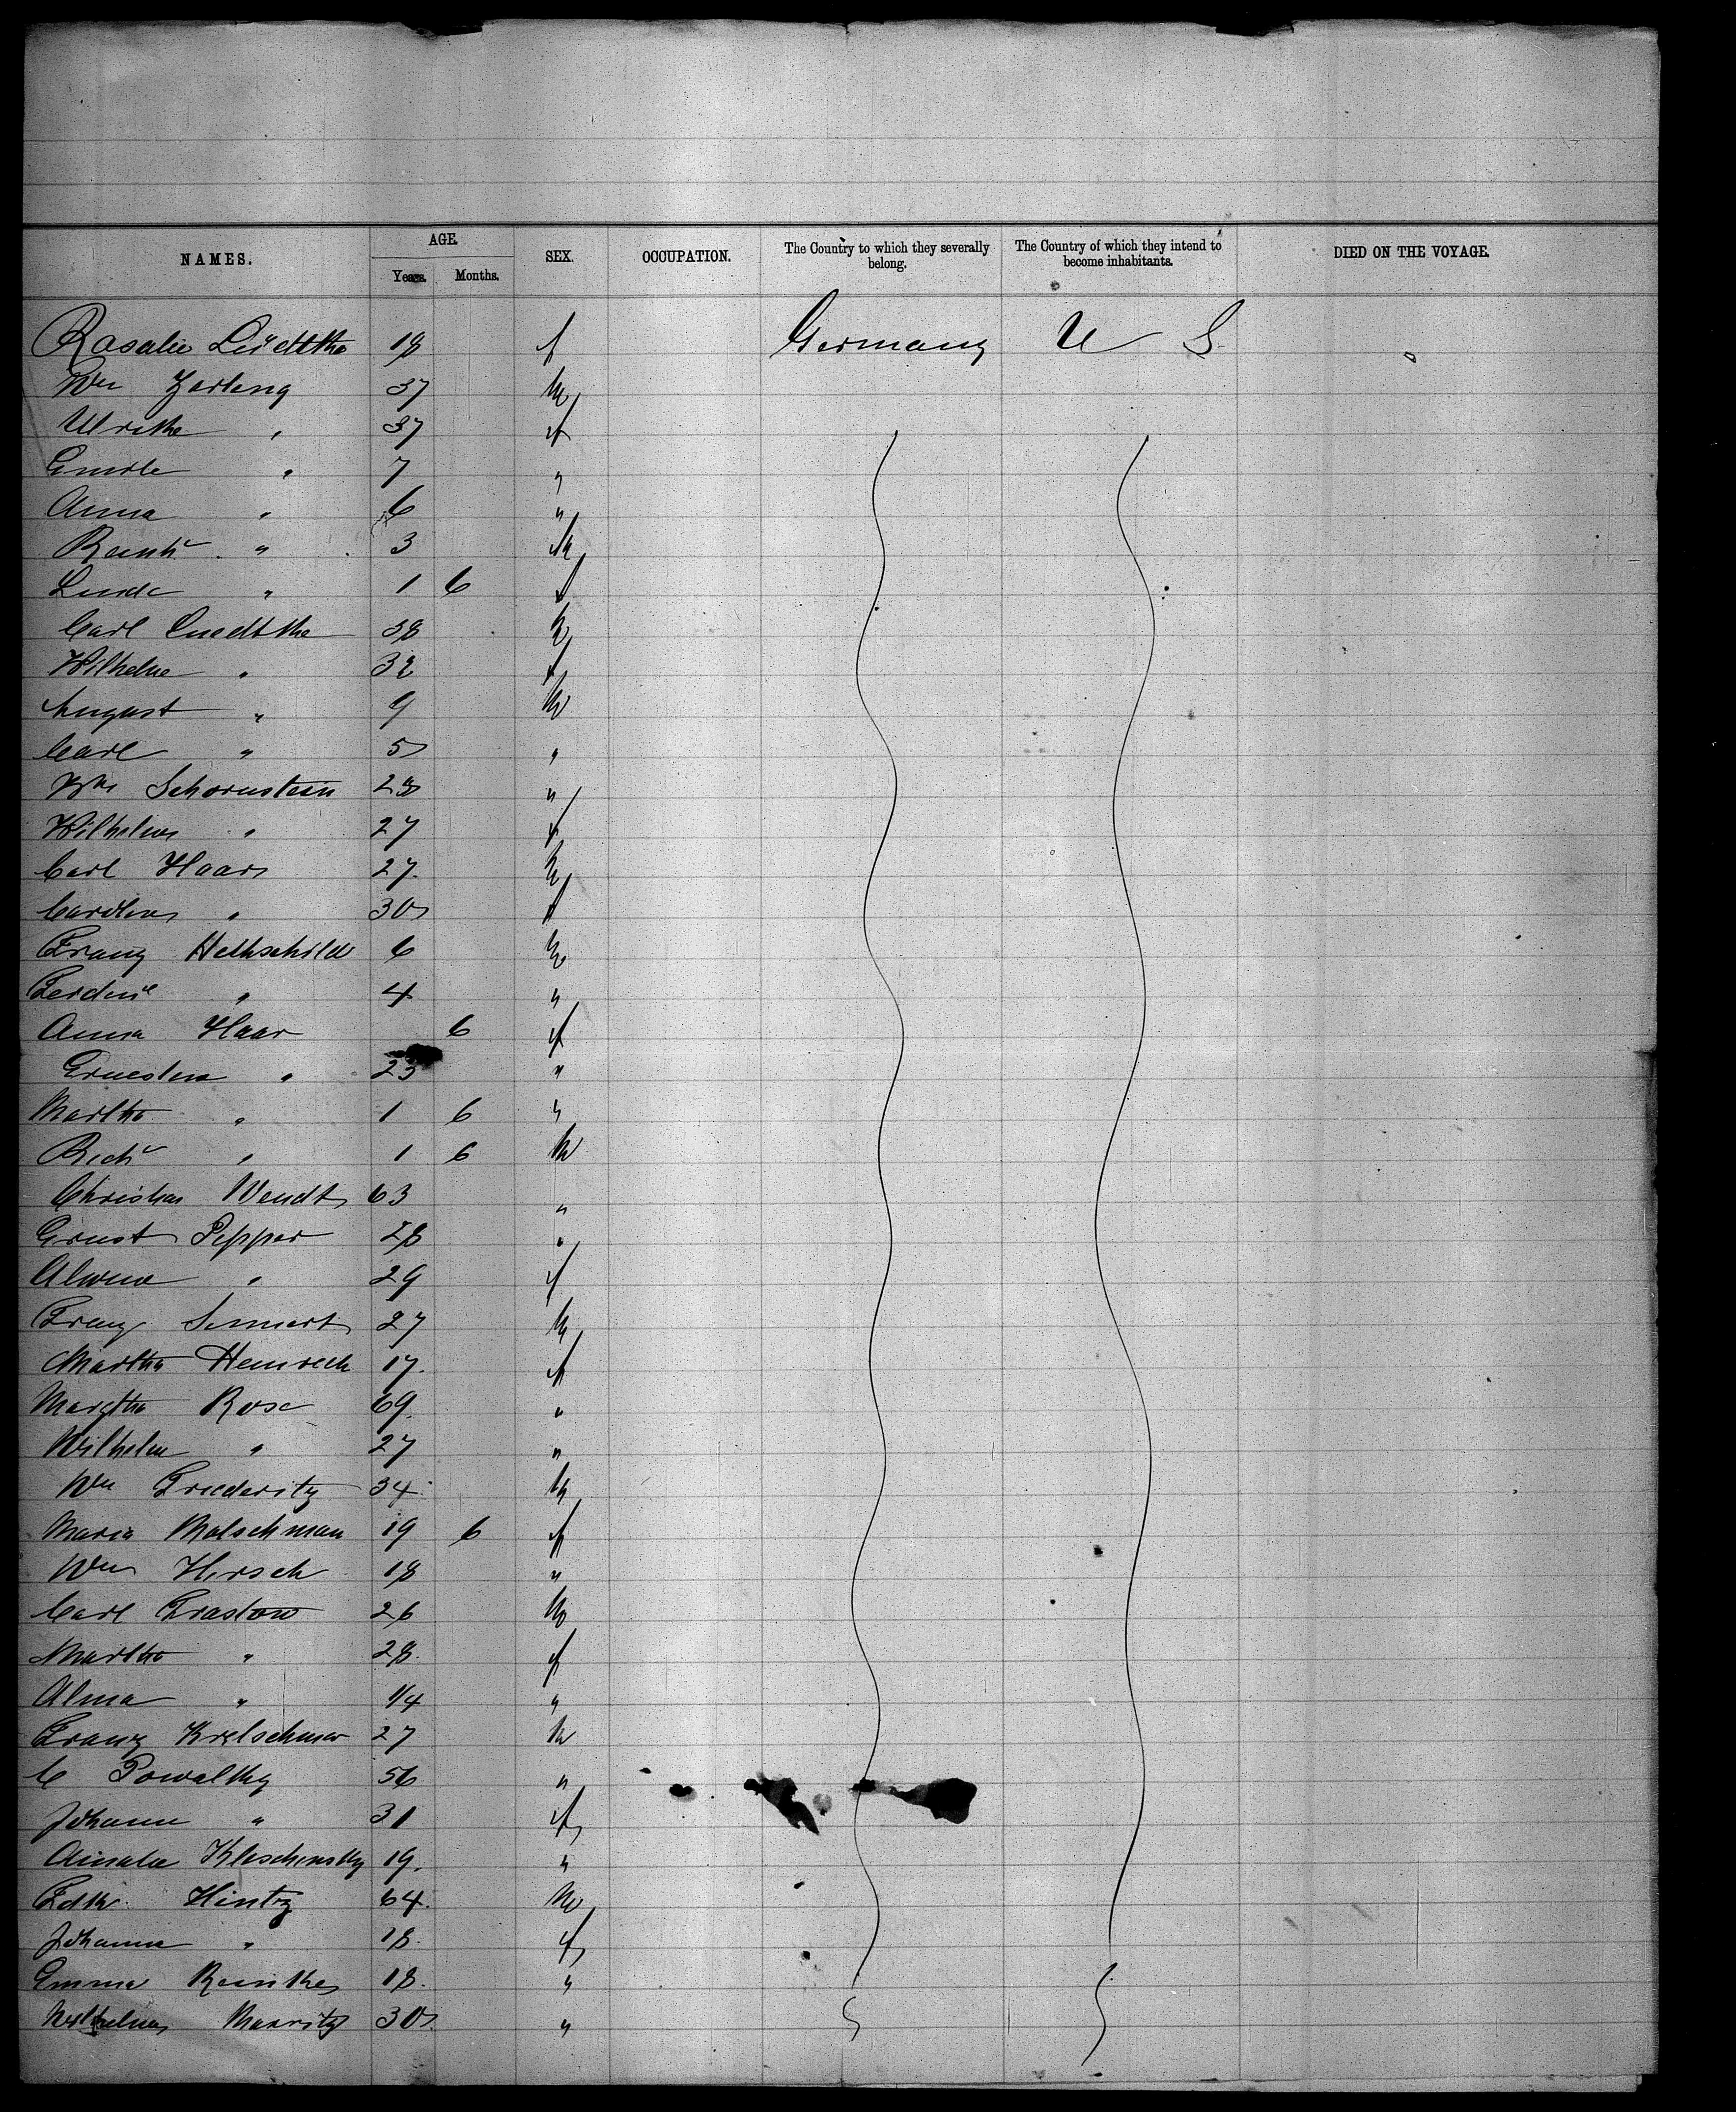 NAMES. AGE. Years. Months. SEX. OCCUPATION. The Country to which they severally belong. The Country of which they intend to become inhabitants. DIED ON THE VOYAGE.
Rosalie Lüdttke 18 f Germany U S
Wm Zarling 37 M
Ulrike " 37 f
Emile " 7 "
Anna " 6 "
Reinh " 3 M
Linda " 1 6 f
Carl Luedtke 38 M
Wilhelme " 32 f
August " 9 M
Carl " 5 "
Wm Schornstein 28 "
Wilhelme " 27 f
Carl Haar 27 M
Caroline " 30 f
Franz 6 M
Ferdine " 4 "
Anna Haar 6 f
Ernestine " 23 "
Martha " 1 6 "
Rich " 1 6 M
Christian Wendt 63 "
Ernst Pepper 28 "
Alwine " 29 f
Franz 27 M
Martha Heinrich 17 f
Margtha Rose 69 "
Wilhelm " 27 "
Wm Friederitz 34 M
Maria Malschman 19 6 f
Wm Hirsch 18 "
Carl Trastow 26 M
Martha " 28 f
Alma " 1/4 "
Franz Kretschmar 27 M
C Powalky 56 "
Johann " 31 f
Amalie 19 "
Fdk Hintz 64 M
Johanna " 18 f
Emma Reinke 18 "
Wilhelme Maaritz 30 "